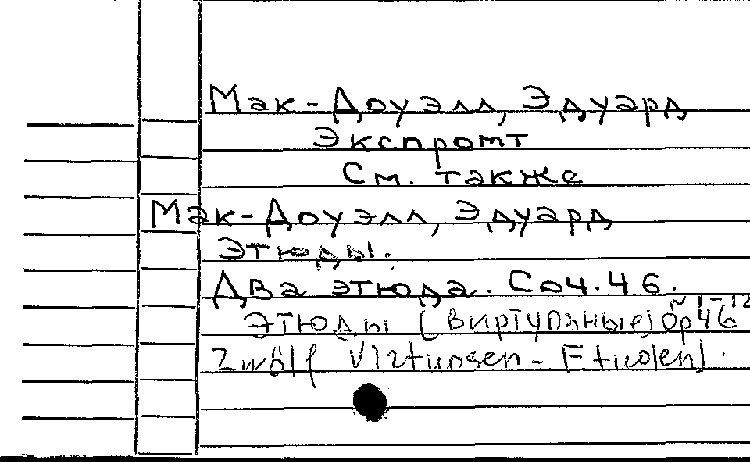 Мак-Доуэлл, Эдуард
Экспромт
См. также
Мак-Доуэлл, Эдуард
Этюды.
Два этюда. Соч. 46.
Этюды (виртуозные) op 46 № 1-12
Zwölf Virtuosen-Etuden).